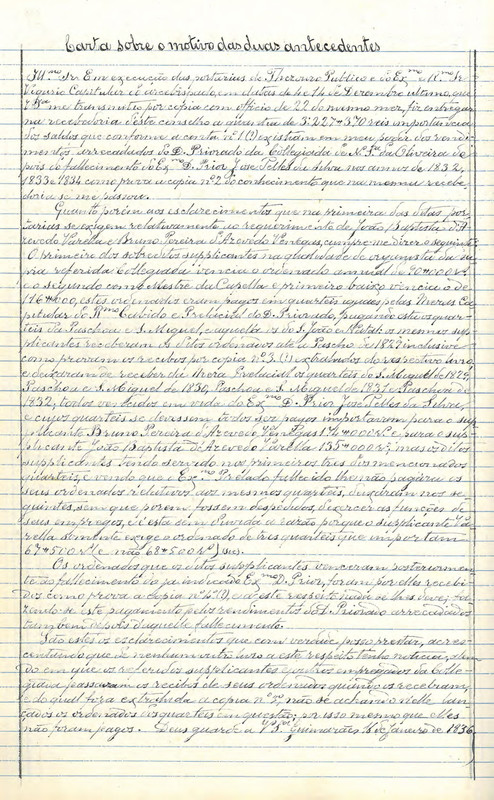 Carta sobre o motivo das duas antecedentes
Ill.mo Sr. Em execução das portarias do Thezouro Publico e do Ex.mo e R.mo Sr.
Vigario Capitular d'este arcebispado, em datas de 1 e 14 de Dezembro ultimo, que
V. S.a me transmittio por copia com officio de 22 do mesmo mez, fiz entregar
na recebedoria d'este conselho a quantia de 3:227$370 reis importancia
dos saldos que conforme a conta n.o 1 (1) existiam em meu poder dos rendi-
mentos arrecadados do D. Priorado da Collegiada de N. S.ra da Oliveira de-
pois do fallecimento do Ex.mo D. Prior José Telles da Silva nos annos de 1832,
1833 e 1834 como prova a copia n.o 2 do conhecimento que na mesma recebe-
doria se me passou.
Quanto porem aos esclarecimentos que na primeira das ditas por-
tarias se exigem relativamente ao requerimento de João Baptista d'A-
zevedo Varella e Bruno Pereira d'Azevedo Venegas, cumpre-me dizer o seguinte:
O primeiro dos sobreditos supplicantes na qualidade de organista da
referida Collegiada vencia o ordenado annual de 90$000 r.s
e o segundo como Mestre da Capella e primeiro baixo vencia o de
116$000, estes ordenados eram pagos em quarteis iguaes pelas Mezas Ca-
pitular do R.mo Cabido e Prelacial do D. Priorado, pagando esta os quar-
teis da Paschoa e S. Miguel, e aquella os do S. João e Natal: os mesmos sup-
plicantes receberam os ditos ordenados até a Pascho de 1829 inclusive
como provam os recibos por copia n.o 3 (1) extrahidos do respectivo livro,
e deixaram de receber da Meza Prelacial os quarteis do S. Miguel de 1829,
Paschoa e S. Miguel de 1830, Paschoa e S. Miguel de 1831 e Paschoa de
1832, todos vencidos em vida do Ex.mo D. Prior José Telles da Silva,
e cujos quarteis se devessem todos ser pagos importarem para o sup-
plicante Bruno Pereira d'Azevedo Venegas 174$000 r.s e para o sup-
plicante João Baptista d'Azevedo Varella 135$000 r.s, mas os ditos
supplicantes tendo servido nos primeiros tres dos mencionados
quarteis, e vendo que o Ex.mo Prelado fallecido lhe não pagára os
seus ordenados relativos aos mesmos quarteis, deixaram nos se-
guintes, sem que porem fossem despedidos, de exercer as funções de
seus empregos, e é esta sem duvida a razão porque o supplicante Va-
rella sómente exige o ordenado de tres quarteis que importam
67$500 r.s e não 68$500 r.s (sic).
Os ordenados que os ditos supplicantes venceram posteriormen-
te ao fallecimento do ja indicado Ex.mo D. Prior, foram por elles recebi-
dos como prova a copia n.o 4 (1), e a este respeito nada se lhes deve, fa-
zendo-se este pagamento pelos rendimentos do D. Priorado arrecadados
tambem depois d'aquelle fallecimento.
São estes os esclarecimentos que com verdade posso prestar, acres-
centando que de nenhum outro livro a este respeito tenho noticia, alem
do em que os referidos supplicantes e outros empregados da Colle-
giada passavam os recibos de seus ordenados quando os recebiam,
e do qual foi extrahida a copia n.o 3, não se achando n'elle lan-
çados os ordenados dos quarteis em questão, por isso mesmo que elles
não foram pagos. Deus guarde a V. S.a Guimarães 16 de janeiro de 1836.